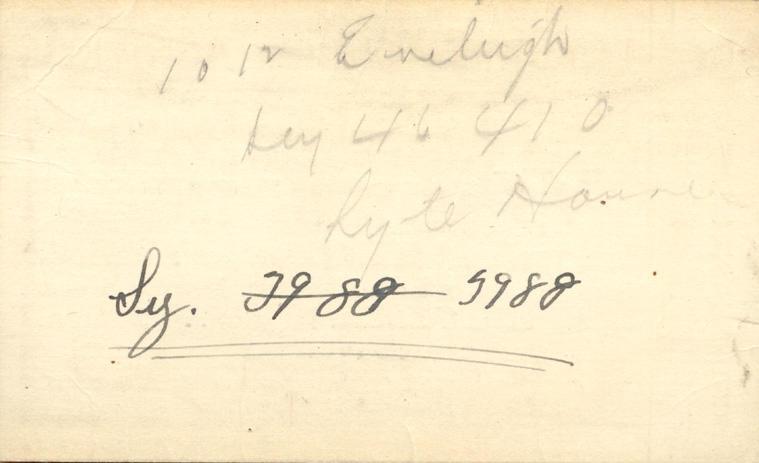 1012 Eveleigh
Key 46 410
Lyte House
Sy. 7988 5988